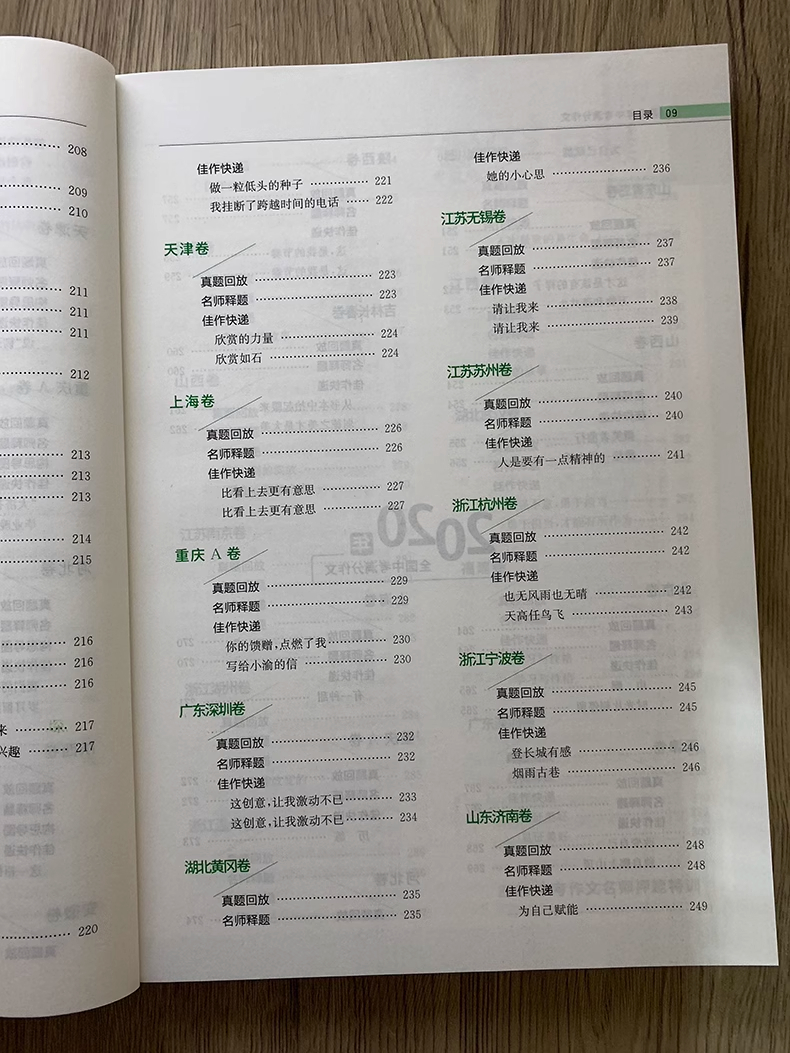 208
209
210
211
211
211
212
213
213
213
214
215
216
216
216
来 ………… 217
兴趣 ……… 217
220
目录 09
佳作快递
做一粒低头的种子 ………… 221
我挂断了跨越时间的电话 …… 222
天津卷
真题回放 ………………… 223
名师释题 ………………… 223
佳作快递
欣赏的力量 ……………… 224
欣赏如石 ………………… 224
上海卷
真题回放 ………………… 226
名师释题 ………………… 226
佳作快递
比看上去更有意思 ………… 227
比看上去更有意思 ………… 227
重庆 A 卷
真题回放 ………………… 229
名师释题 ………………… 229
佳作快递
你的馈赠,点燃了我 ……… 230
写给小渝的信 …………… 230
广东深圳卷
真题回放 ………………… 232
名师释题 ………………… 232
佳作快递
这创意,让我激动不已 …… 233
这创意,让我激动不已 …… 234
湖北黄冈卷
真题回放 ………………… 235
名师释题 ………………… 235
佳作快递
她的小心思 ……………… 236
江苏无锡卷
真题回放 ………………… 237
名师释题 ………………… 237
佳作快递
请让我来 ………………… 238
请让我来 ………………… 239
江苏苏州卷
真题回放 ………………… 240
名师释题 ………………… 240
佳作快递
人是要有一点精神的 ……… 241
浙江杭州卷
真题回放 ………………… 242
名师释题 ………………… 242
佳作快递
也无风雨也无晴 ………… 242
天高任鸟飞 ……………… 243
浙江宁波卷
真题回放 ………………… 245
名师释题 ………………… 245
佳作快递
登长城有感 ……………… 246
烟雨古巷 ………………… 246
山东济南卷
真题回放 ………………… 248
名师释题 ………………… 248
佳作快递
为自己赋能 ……………… 249